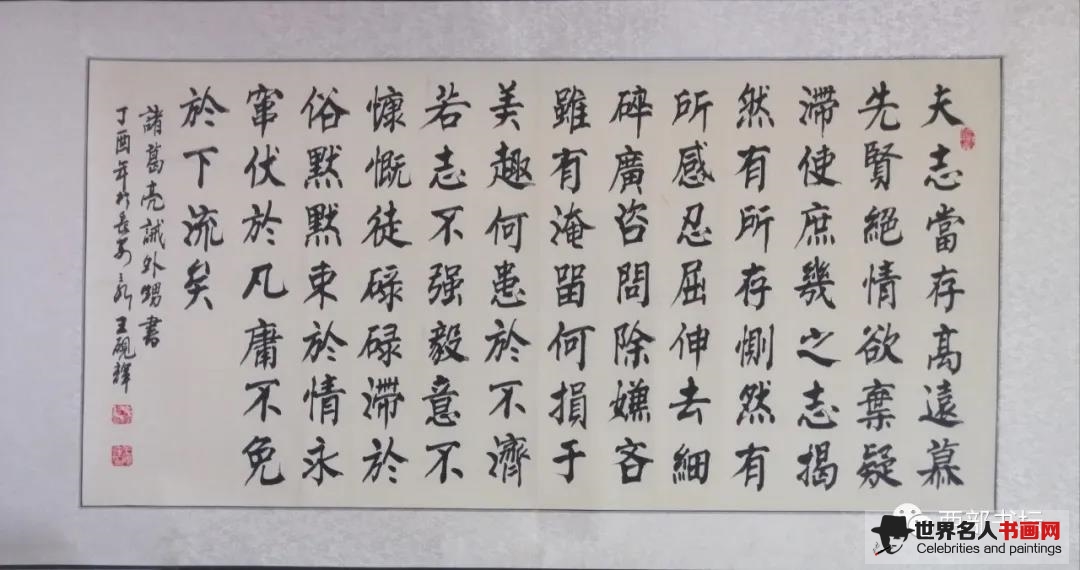 夫志當存高遠慕
先賢絕情欲棄疑
滯使庶幾之志揭
然有所存惻然有
所感忍屈伸去細
碎廣咨問除嫌吝
雖有淹留何損于
美趣何患於不濟
若志不强毅意不
慷慨徒碌碌滯於
俗默默束於情永
竄伏於凡庸不免
於下流矣
諸葛亮誡外甥書
丁酉年於長安王硯輝
西部书坛
世界名人书画网
Celebrities and paintings